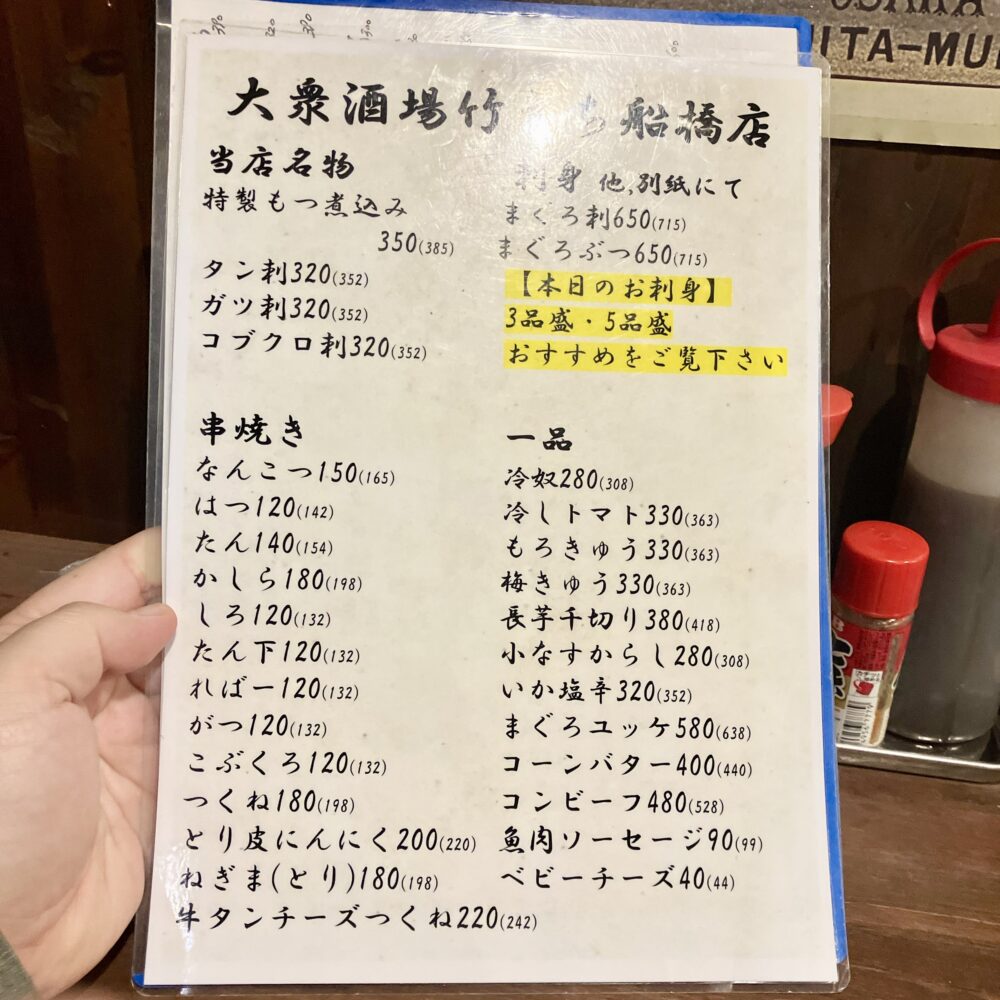 大衆酒場竹 ち船橋店
当店名物
特製もつ煮込み
350(385)
タン刺320(352)
ガツ刺320(352)
コブクロ刺320(352)
刺身 他,別紙にて
まぐろ刺650(715)
まぐろぶつ650(715)
【本日のお刺身】
3品盛・5品盛
おすすめをご覧下さい
串焼き
なんこつ150(165)
はつ120(142)
たん140(154)
かしら180(198)
しろ120(132)
たん下120(132)
ればー120(132)
がつ120(132)
こぶくろ120(132)
つくね180(198)
とり皮にんにく200(220)
ねぎま(とり)180(198)
牛タンチーズつくね220(242)
一品
冷奴280(308)
冷しトマト330(363)
もろきゅう330(363)
梅きゅう330(363)
長芋千切り380(418)
小なすからし280(308)
いか塩辛320(352)
まぐろユッケ580(638)
コーンバター400(440)
コンビーフ480(528)
魚肉ソーセージ90(99)
ベビーチーズ40(44)